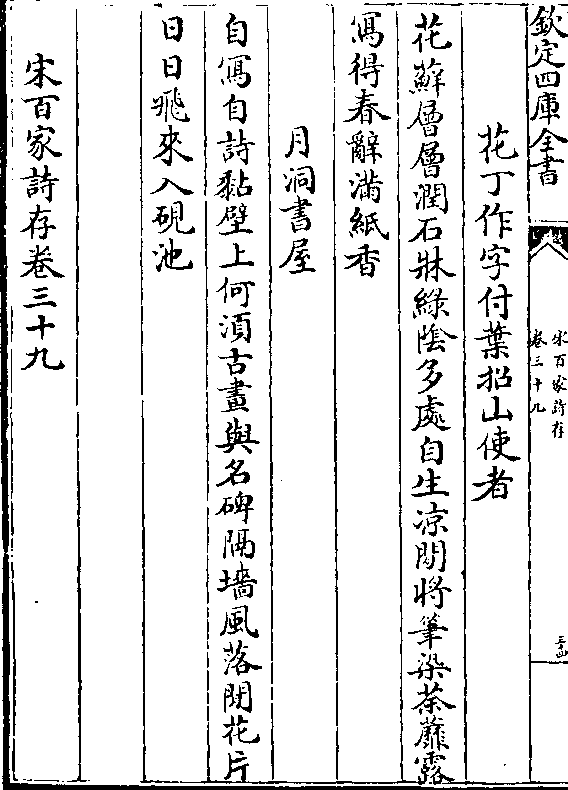 欽定四庫全書
宋百家詩存
卷三十九
三四
花丁作字付葉招山使者
花蘚層層潤石牀綠陰多處自生凉閒將筆染荼蘼露
寫得春辭滿紙香
月洞書屋
自寫自詩黏壁上何須古畫與名碑隔墻風落閒花片
日日飛來入硯池
宋百家詩存卷三十九